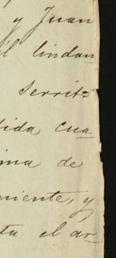 y Juan
il lindan
Serrit-
dida cua
ima de
niente, y
ta el ar